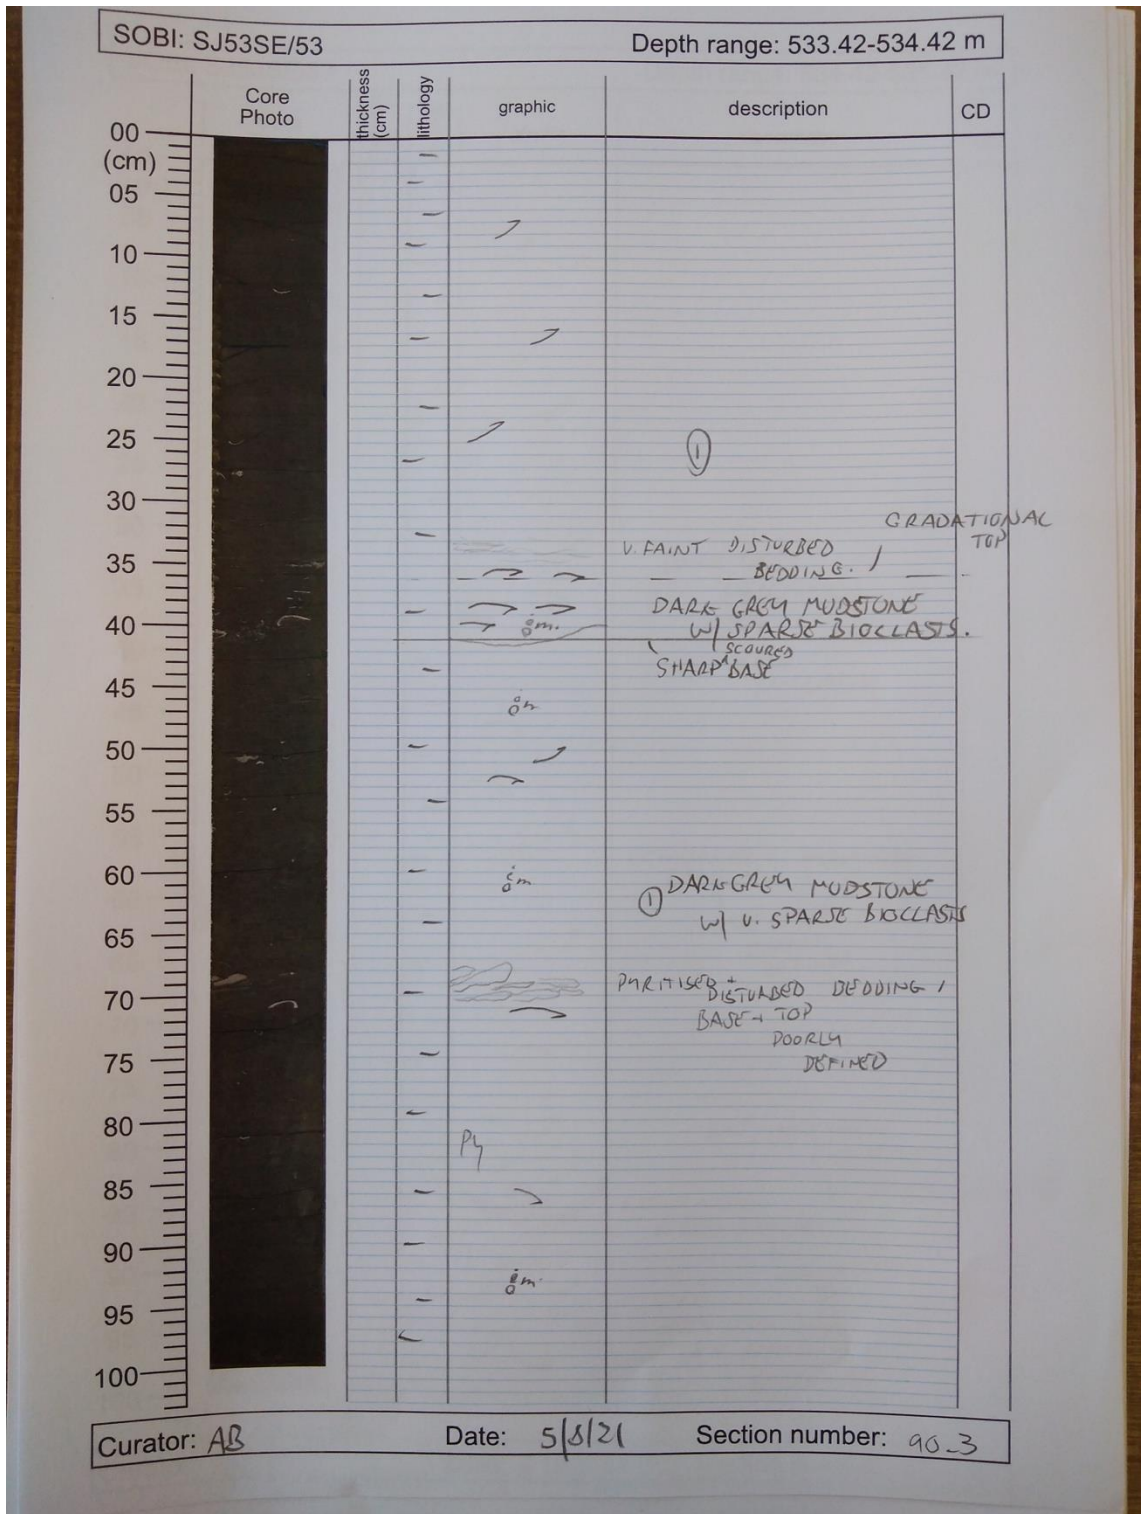 SOBI: SJ53SE/53 Depth range: 533.42-534.42 m
Core Photo thickness (cm) lithology graphic description CD
00
(cm)
05
10
15
20
25 ①
30
GRADATIONAL
TOP
V. FAINT DISTURBED
35 BEDDING. /
DARK GREY MUDSTONE
40 m. W/ SPARSE BIOCLASTS.
SCOURED
SHARP ^ BASE
45
m
50
55
60 m ① DARK GREY MUDSTONE
W/ V. SPARSE BIOCLASTS
65
PYRITISED + DISTURBED BEDDING /
70 BASE + TOP
POORLY
75 DEFINED
80
Py
85
90
m
95
100
Curator: AB Date: 5/8/21 Section number: 90_3